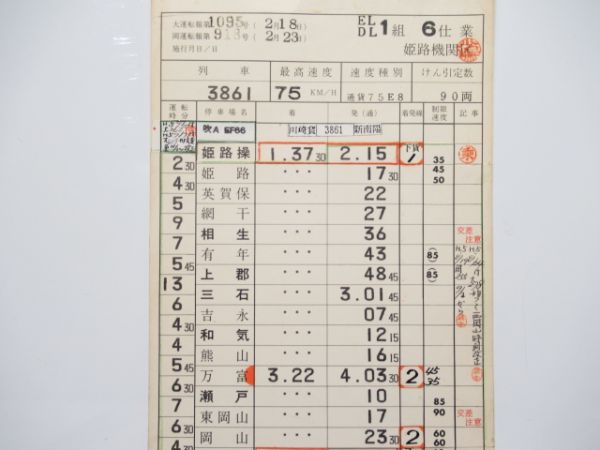 大運転報第1095号(2月18日)
岡運転報第913号(2月23日)
施行月日/日
EL
DL 1組 6仕業
姫路機関区
列車 最高速度 速度種別 けん引定数
3861 75 KM/H 通貨75E8 90両
運転時分 停車場名 着 発(通) 着発線 制限速度 記事
吹A EF66 川崎貨 3861 新南陽
姫路操 1.37 30 2.15 下貨1 35 乗
2 30 姫路 ・・・ 17 30 45 50
4 30 英賀保 ・・・ 22
5 網干 ・・・ 27
9 相生 ・・・ 36 交差注意
7 有年 ・・・ 43 (85)
5 45 上郡 ・・・ 48 45 (85)
13 三石 ・・・ 3.01 45
6 吉永 ・・・ 07 45
4 30 和気 ・・・ 12 15
4 熊山 ・・・ 16 15
5 45 万富 3.22 4.03 30 2 45 35
6 30 瀬戸 ・・・ 10 85
7 東岡山 ・・・ 17 90 交差注意
6 30 岡山 ・・・ 23 30 2 60 60
4 30